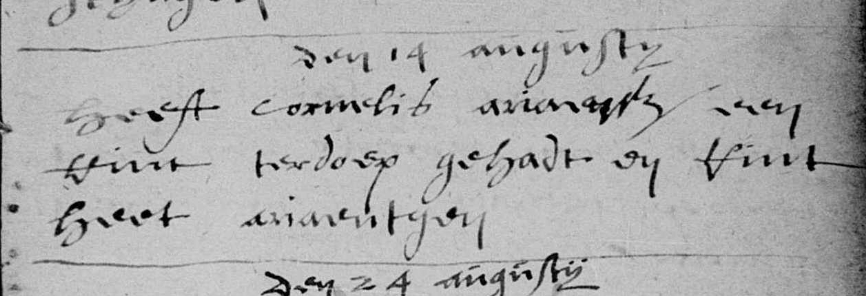 den 14 augusty
heeft cornelis ariaensz een
kint terdoep gehadt en kint
heet ariaentgen
den 24 augustij